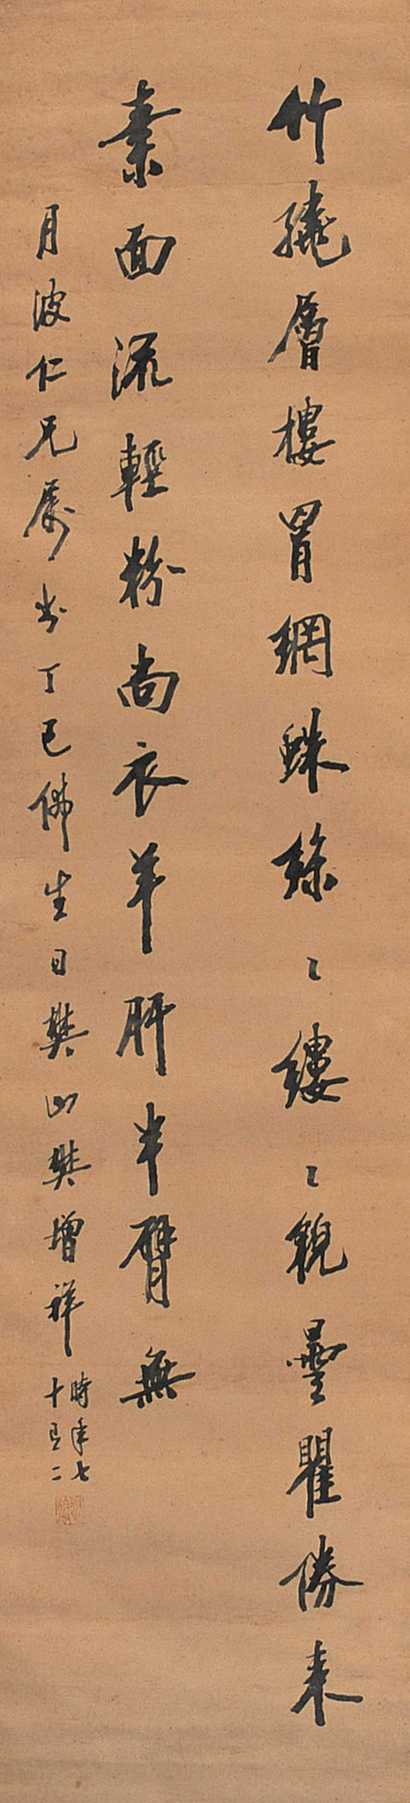 竹繞層樓罥網蛛絲〻縷〻貌曇瞿勝来
素面流輕粉尚衣羊肝半臂無
月波仁兄屬書丁巳佛生日樊山樊增祥
時年七
十有二